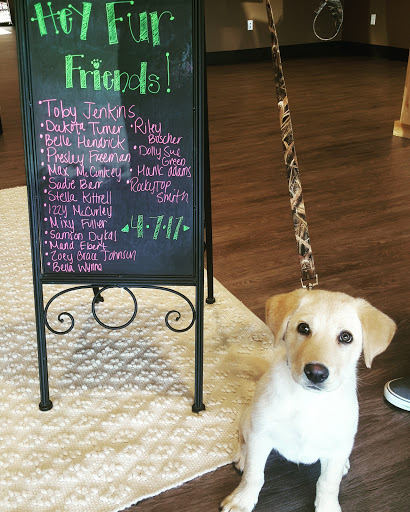 Hey Fur
Friends!
Toby Jenkins
Dakota Turner
Belle Hendrick
Presley Freeman
Max McCurley
Sadie Barr
Stella Kittrell
Izzy McCurley
Mixy Fuller
Samson Dykal
Mand Ebert
Zoey Grace Johnson
Bella Wynne
Riley
Butcher
Dolly Sue
Green
Hank Adams
RockyTop
Smith
4.7.17